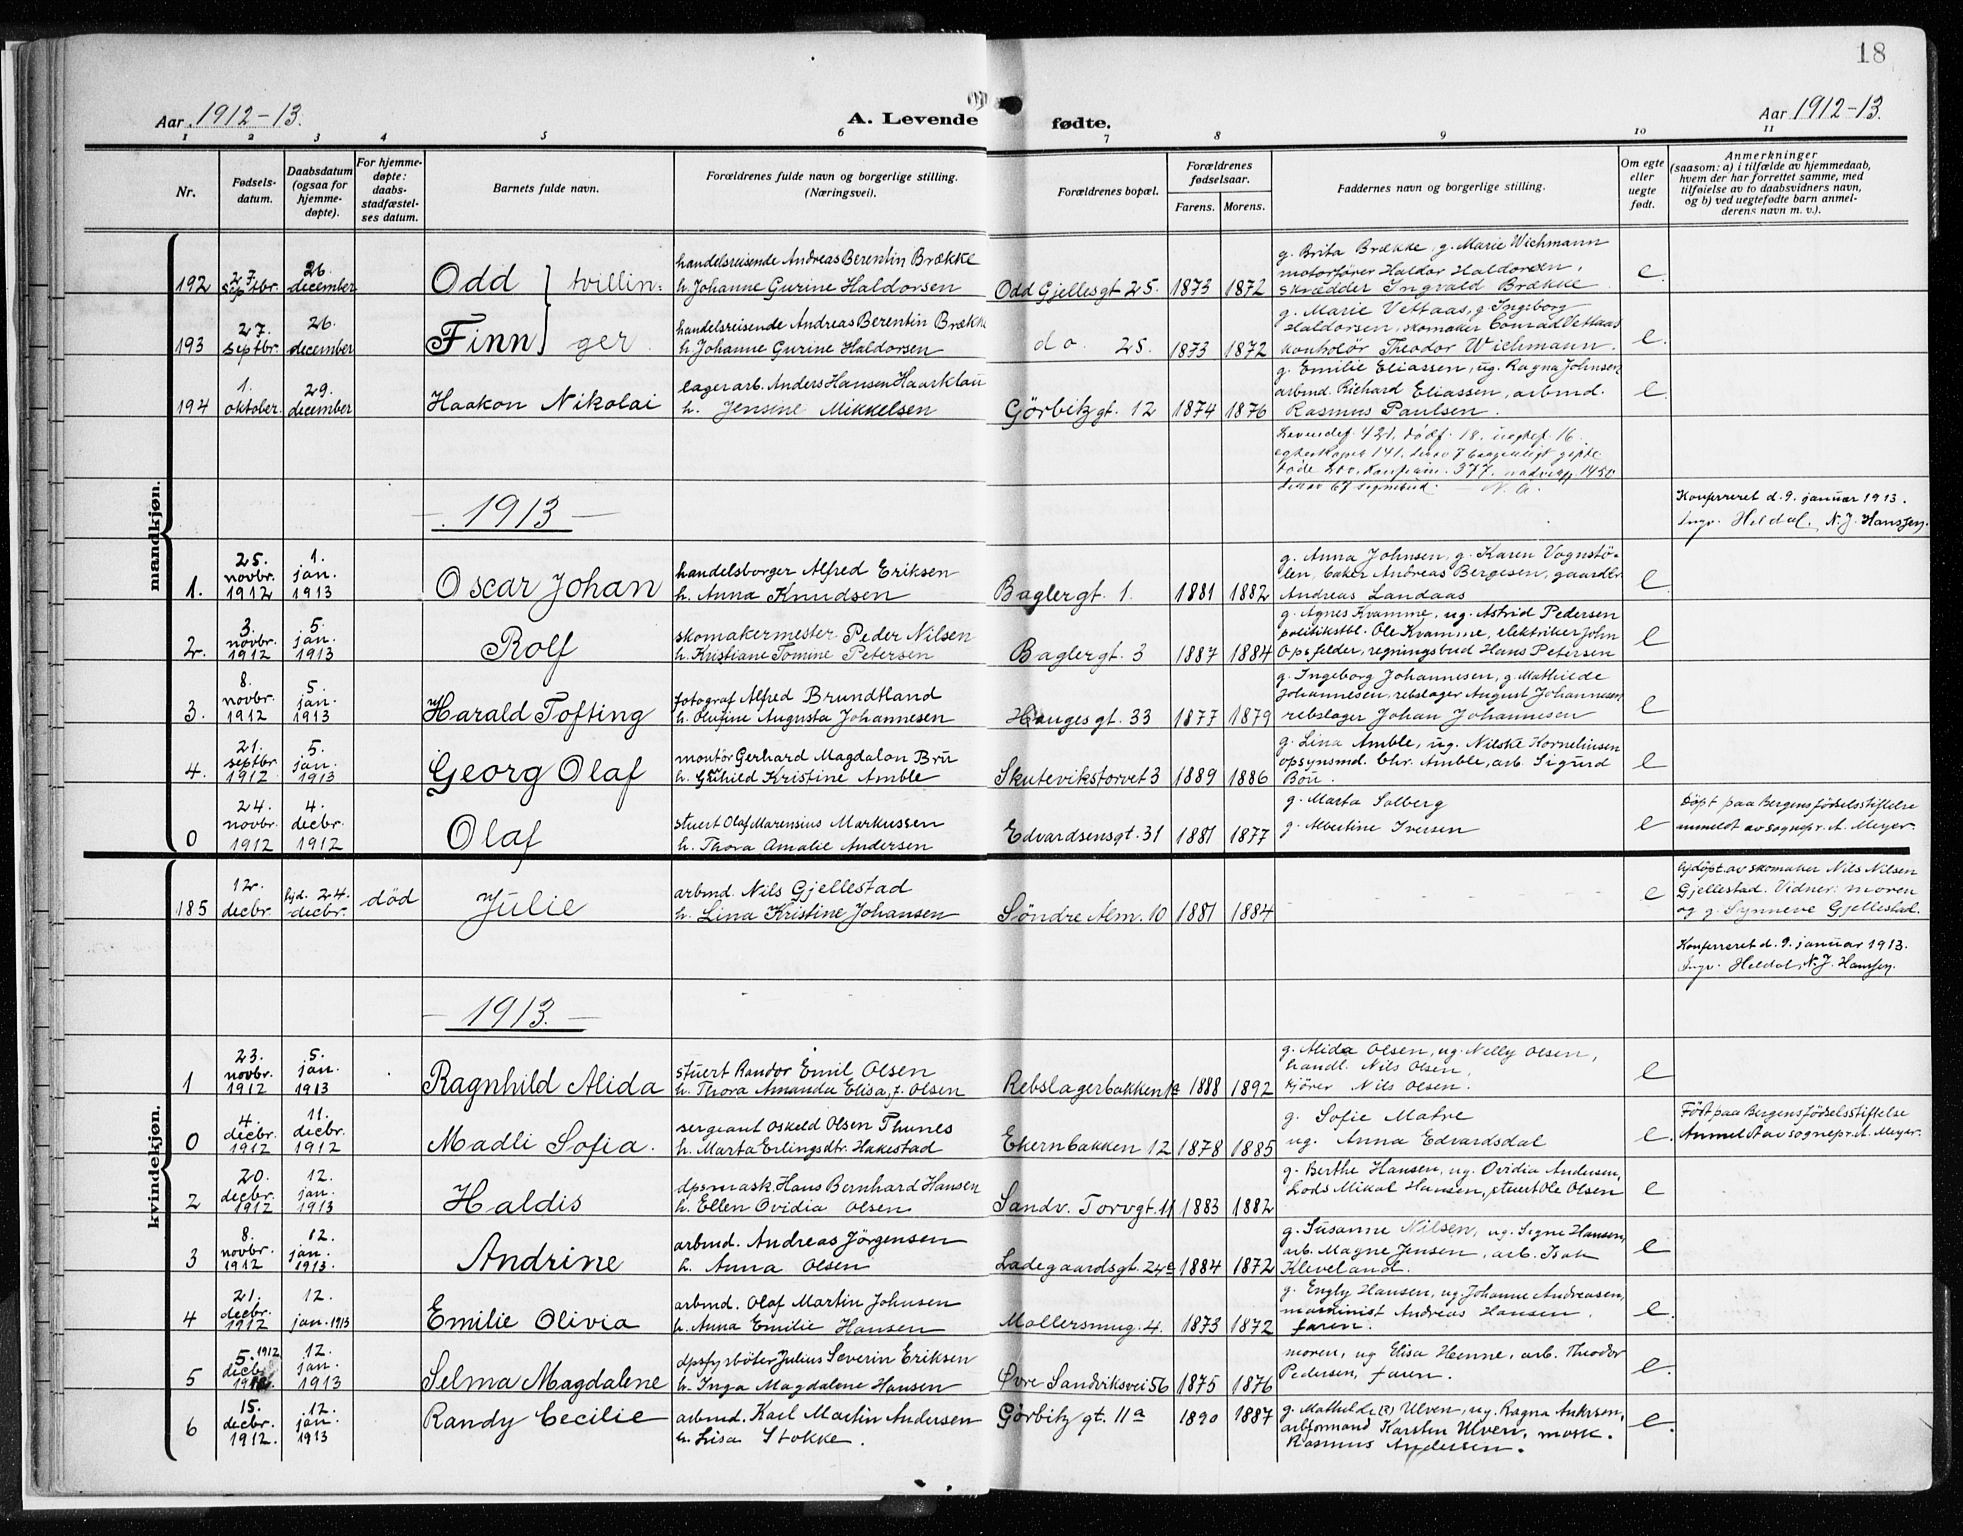 18
Aar 1912-13.
A. Levende fødte.
Aar 1912-13.
1 2 3 4 5 6 7 8 9 10 11
Nr.
Fødsels-
datum.
Daabsdatum
(ogsaa for
hjemme-
døpte).
For hjemme-
døpte:
daabs-
stadfæstel-
ses datum.
Barnets fulde navn.
Forældrenes fulde navn og borgerlige stilling.
(Næringsvei).
Forældrenes bopæl.
Forældrenes
fødselsaar.
Farens. Morens.
Faddernes navn og borgerlige stilling.
Om egte
eller
uegte
født.
Anmerkninger
(saasom: a) i tilfælde av hjemmedaab,
hvem der har forrettet samme, med
tilføielse av to daabsvidners navn,
og b) ved uegtefødte barn anmel-
derens navn m. v.).
mandkjøn.
192 27. septbr. 26. december Odd } tvillin=
handelsreisende Andreas Berentin Brække
h. Johanne Gurine Haldorsen
Odd Gjellesgt 25. 1873 1872
g. Brita Brække, g. Marie Wichmann
motorfører Haldor Haldorsen,
skrædder Ingvald Brække
e.
193 27. septbr. 26. december Finn } ger.
handelsreisende Andreas Berentin Brække
h. Johanne Gurine Haldorsen
do. 25. 1873 1872
g. Marie Vettaas, g. Ingeborg
Haldorsen, skomaker Conrad Vettaas
kontolør Theodor Wichmann.
e.
194 1. oktober. 29. december Haakon Nikolai
lagerarb. Anders Hansen Haarklau
h. Jensine Mikkelsen
Görbitzgt. 12 1874 1876
g. Emilie Eliassen, ug. Ragna Johnsen
arbmd. Richard Eliassen, arbmd.
Rasmus Paulsen.
e.
Levendef. 421. dödf. 18. uegtef. 16.
N. A.
- 1913 -
Konferreret d. 9. januar 1913.
Ingv. Heldal, N. J. Hanssen.
1. 25. novbr. 1912 1. jan. 1913 Oscar Johan
handelsborger Alfred Eriksen
h. Anna Knudsen
Baglergt. 1. 1881 1882
g. Anna Johnsen, g. Karen Vognstö-
len, baker Andreas Bergesen, gaardbr.
Andreas Landaas
e
2. 3. novbr. 1912 5. jan. 1913 Rolf
skomakermester Peder Nilsen
h. Kristiane Tomine Petersen
Baglergt. 3 1887 1884
g. Agnes Kvamme, ug. Astrid Pedersen
politikstbl. Ole Kvamme, elektriker John
Opsfelder, regningsbud Hans Petersen
e
3. 8. novbr. 1912 5. jan. 1913 Harald Tofting
fotograf Alfred Brundtland
h. Olufine Augusta Johannesen
Haugesgt. 33 1877 1879
g. Ingeborg Johannesen, g. Mathilde
Johannesen, rebslager August Johannesen,
rebslager Johan Johannesen
e
4. 21. septbr 1912. 5. jan. 1913 Georg Olaf
montör Gerhard Magdalon Bru
h. Kristine Amble
Skutevikstorvet 3 1889 1886
g. Lina Amble, ug. Nilske Kornelinsen
opsynsmd. Chr. Amble, arb. Sigurd
e
0 24. novbr. 1912 4. decbr. 1912 Olaf
stuert Olaf Marensius Markussen
h. Thora Amalie Andersen
Edvardsensgt. 31 1881 1877
g. Marta Solberg
g. Albertine Iversen
e
Döpt paa Bergens födselsstiftelse
anmeldt av sognepr. A. Meyer.
kvindekjøn.
185 12. decbr. hjd. 24. decbr. död Julie
arbmd. Nils Gjellestad
h. Lina Kristine Johansen
Söndre Alm. 10 1881 1884
e
hjdöpt av skomaker Nils Nilsen
Gjellestad. Vidner: moren
og g. Synneve Gjellestad.
Konferreret d. 9. januar 1913.
Ingv. Heldal, N. J. Hanssen.
- 1913. -
1 23. novbr. 1912 5. jan. 1913 Ragnhild Alida
stuert Randor Emil Olsen
h. Thora Amanda Elisa, f. Olsen
Rebslagerbakken 1a 1888 1892
g. Alida Olsen, ug. Nelly Olsen,
handl. Nils Olsen,
kjörer Nils Olsen.
e
0 4. decbr. 1912 11. decbr. 1912 Madli Sofia.
sergeant Oskeld Olsen Thunes
h. Marta Erlingsdtr. Hakestad
Ekernbakken 12 1878 1885
g. Sofie Matre
ug. Anna Edvardsdal
e.
Födt paa Bergens födselsstiftelse
Anmeldt av sognepr. A. Meyer.
2 20. decbr. 1912 12. jan. 1913 Haldis
dpsmask Hans Bernhard Hansen
h. Ellen Ovidia Olsen
Sandv. Torvgt. 11 1883 1882
g. Berthe Hansen, ug. Ovidia Andersen,
Lods Mikal Hansen, stuert Ole Olsen
e
3 8. novbr. 1912 12. jan. 1913. Andrine
arbmd. Andreas Jörgensen
h. Anna Olsen
Ladegaardsgt. 24a 1884 1872
g. Susanne Nilsen, ug. Signe Hansen,
arb. Magne Jensen, arb. Isak
Kleveland.
e
4 21. decbr. 1912 12. jan. 1913 Emilie Olivia
arbmd. Olaf Martin Johnsen
h. Anna Emilie Hansen
Mollersmug. 4. 1873 1872
g. Engly Hansen, ug. Johanne Andreasen,
maskinist Andreas Hansen.
faren.
e.
5 5. decbr. 1912 12. jan. 1913 Selma Magdalene
dpsfyrböter Julius Severin Eriksen
h. Inga Magdalene Hansen
Øvre Sandviksvei 56 1875 1876
moren, ug Elisa Henne, arb. Theodor
Pedersen, faren.
e.
6 15. decbr. 1912. 12. jan. 1913 Randy Cecilie
arbmd. Karl Martin Andersen
h. Lisa Stokke.
Görbitz gt. 11a 1890 1887
g. Mathilde (?) Ulven, ug. Ragna Andersen,
arbformand Karsten Ulven, mask.
Rasmus Andersen.
e.